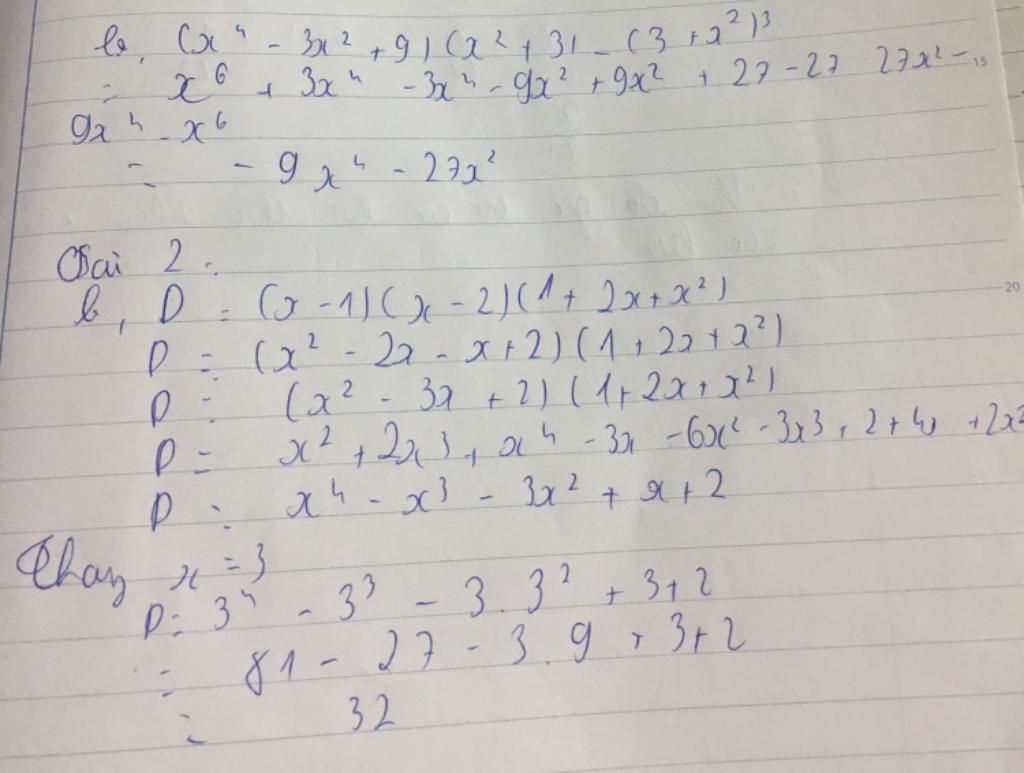 b, (x⁴ - 3x² + 9) (x² + 3) - (3 + x²)³
= x⁶ + 3x⁴ - 3x⁴ - 9x² + 9x² + 27 - 27 27x² -
9x⁴ - x⁶
= - 9x⁴ - 27x²
Bài 2 :
b, D = (x - 1) (x - 2) (1 + 2x + x²)
D = (x² - 2x - x + 2) (1 + 2x + x²)
D = (x² - 3x + 2) (1 + 2x + x²)
D = x² + 2x³ + x⁴ - 3x - 6x² - 3x³ + 2 + 4x + 2x²
D = x⁴ - x³ - 3x² + x + 2
Thay x = 3
D = 3⁴ - 3³ - 3 . 3² + 3 + 2
= 81 - 27 - 3 . 9 + 3 + 2
= 32
15
20